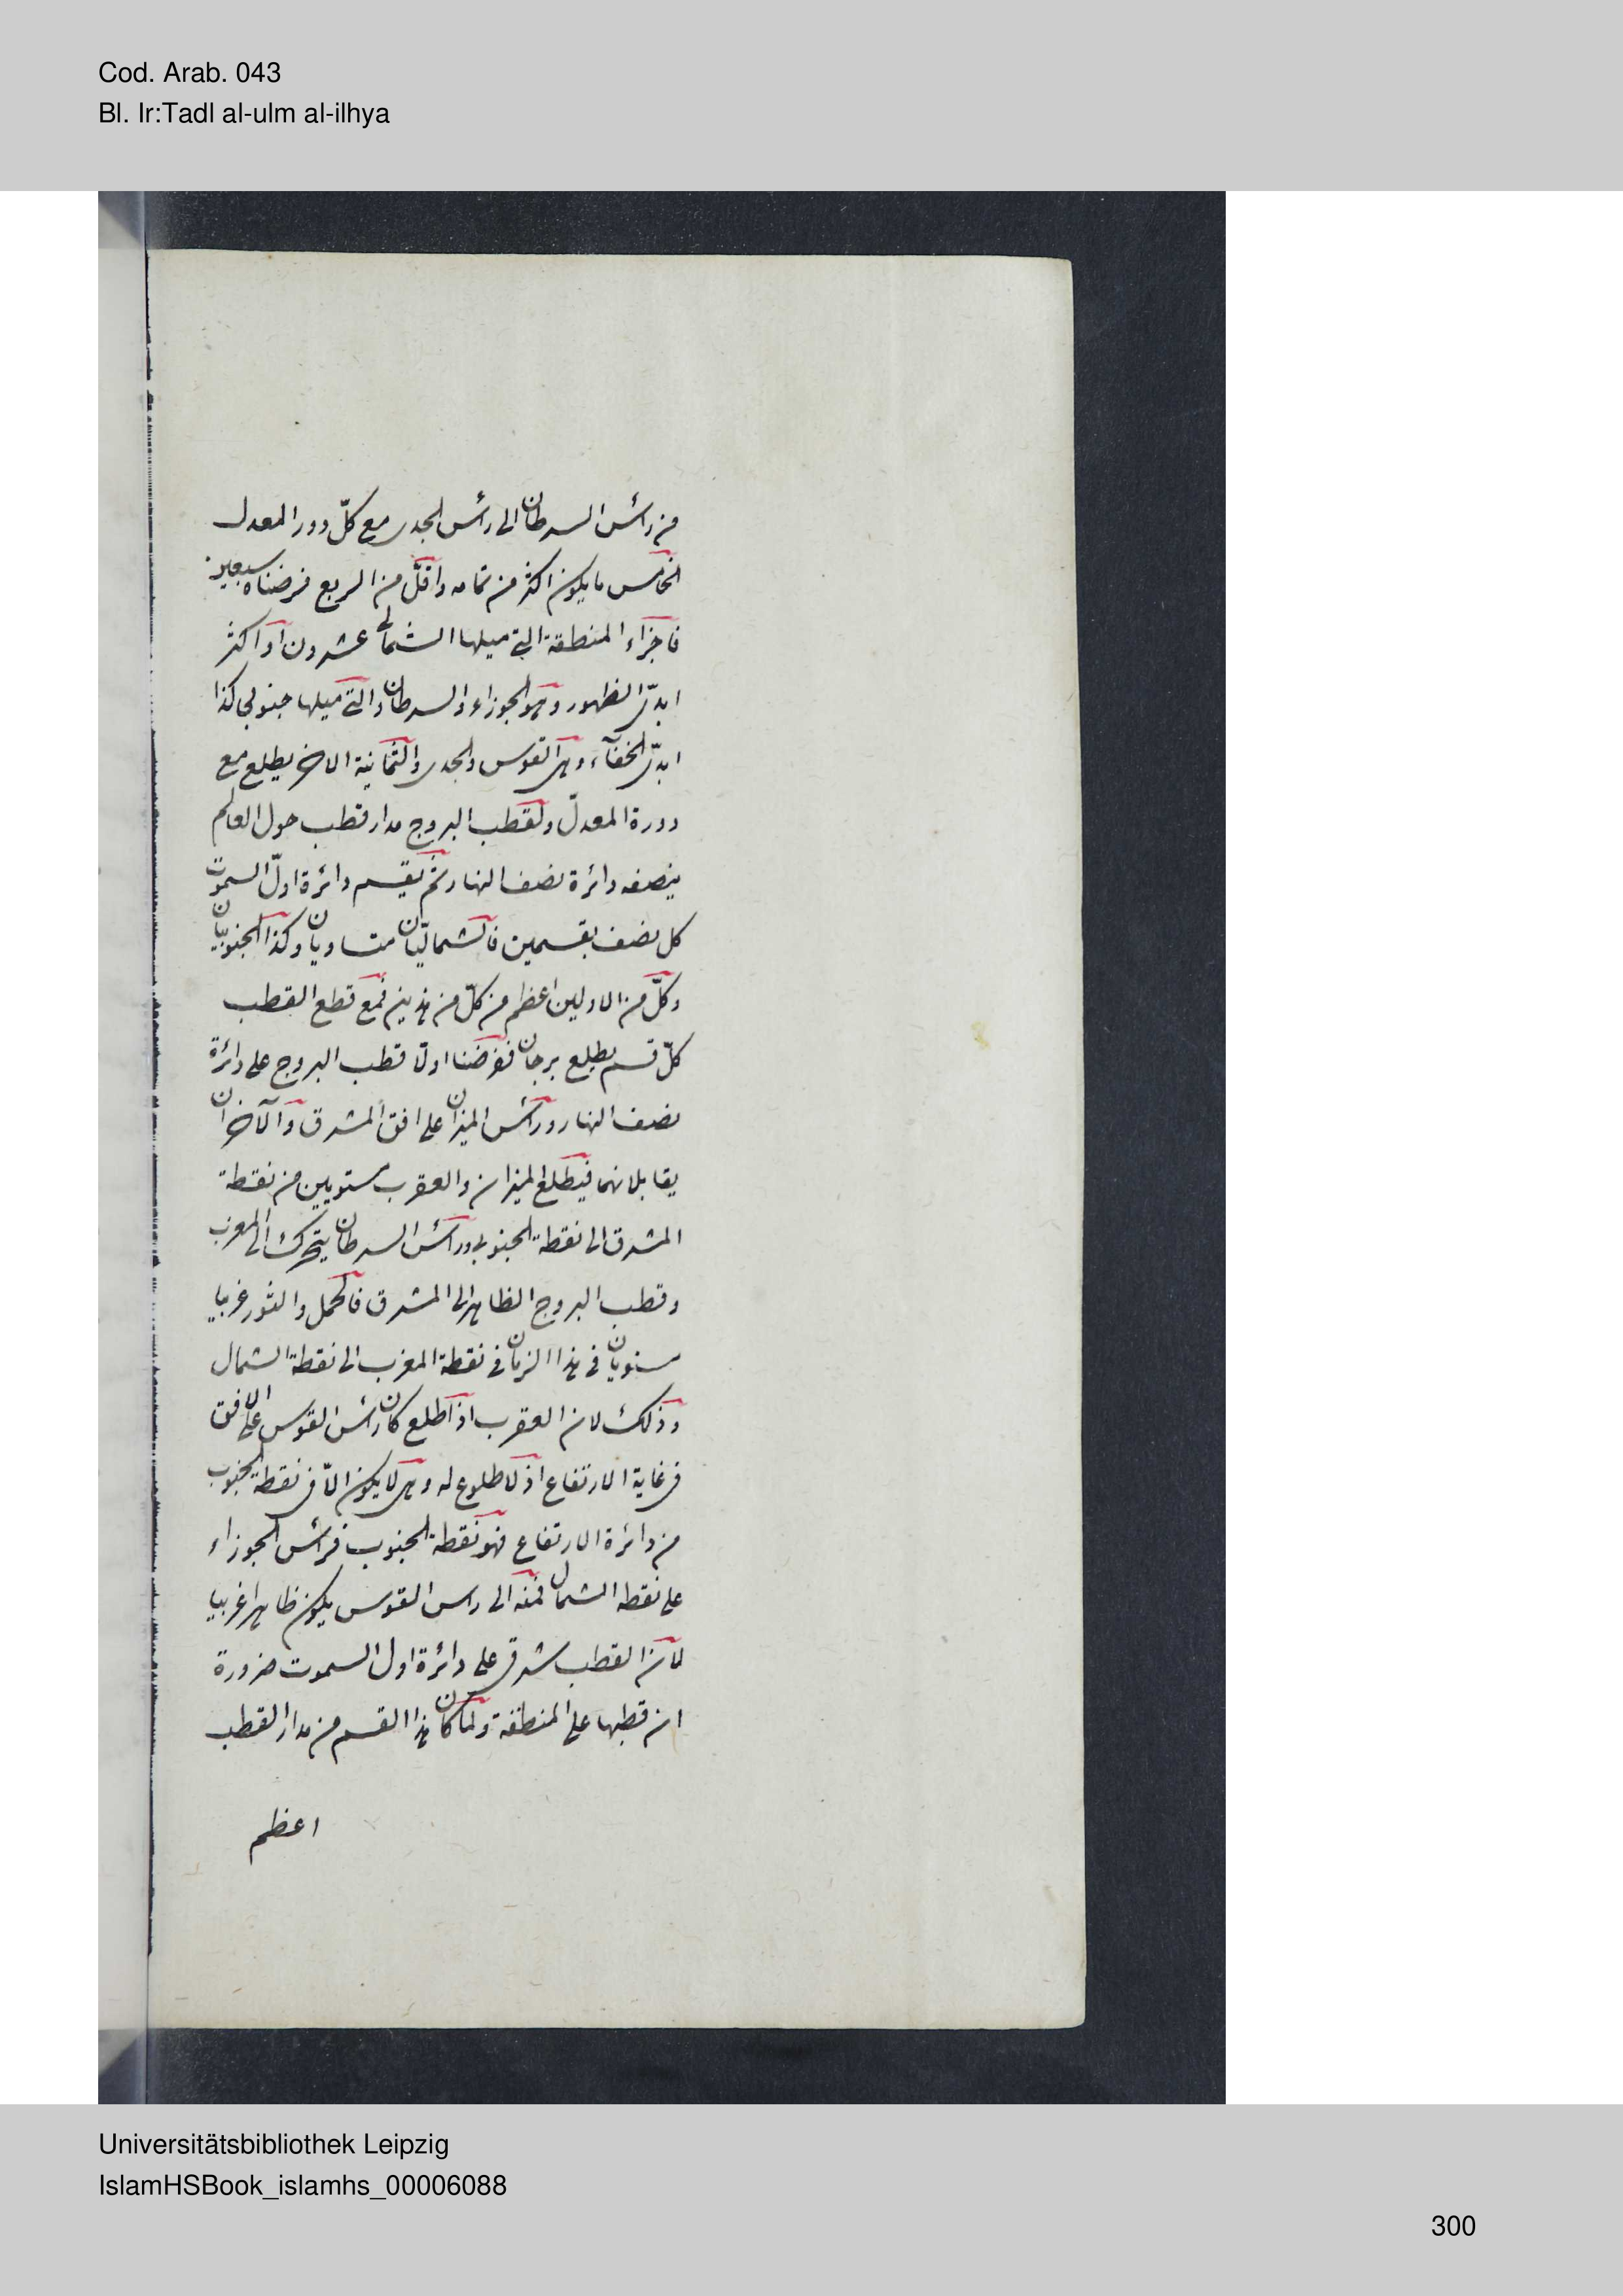 Cod. Arab. 043
Bl. Ir:Tadl al-ulm al-ilhya
من رأس السرطان الى رأس الجدى مع كلّ دور المعدل
الخامس ما يكون اكثر من تمامه واقلّ من الربع فرضناه سبعين
فاجزاء المنطقة التى ميلها الشمالى عشرون او اكثر
ابدىّ الظهور وهو الجوزاء والسرطان والتى ميلها جنوبى كذا
ابدىّ الخفآء وهى القوس والجدى والثمانية الاخر يطلع مع
دورة المعدلّ ولقطب البروج مدار قطب حول العالم
ينصفه دائرة نصف النهار ثم يقسم دائرة اولّ السموت
كل نصف بقسمين فالشماليّان متساويان وكذا الجنوبيّان
وكلّ من الاولين اعظم من كلّ من هذين فمع قطع القطب
كلّ قسم يطلع برجان ففرضنا اولا قطب البروج على دائرة
نصف النهار ورأس الميزان على افق المشرق والآخران
يقابلانهما فيطلع الميزان والعقرب مستويين من نقطة
المشرق الى نقطة الجنوب ورأس السرطان يتحرك الى المغرب
وقطب البروج الظاهر الى المشرق فالحمل والثور غربيا
ستويان فى هذا الزمان فى نقطة المغرب الى نقطة الشمال
وذلك لان العقرب اذا طلع كان رأس القوس على الافق
فى غاية الارتفاع اذ لا طلوع له وهى لا يكون الاّ فى نقطة الجنوب
من دائرة الارتفاع فهو نقطة الجنوب فرأس الجوزاء
على نقطه الشمال فمنه الى راس القوس يكون ظاهرا غربيا
لان القطب شرقى على دائرة اول السموت ضرورة
ان قطبها على المنطقة ولما كان هذا القسم من مدار القطب
اعظم
Universitätsbibliothek Leipzig
IslamHSBook_islamhs_00006088
300